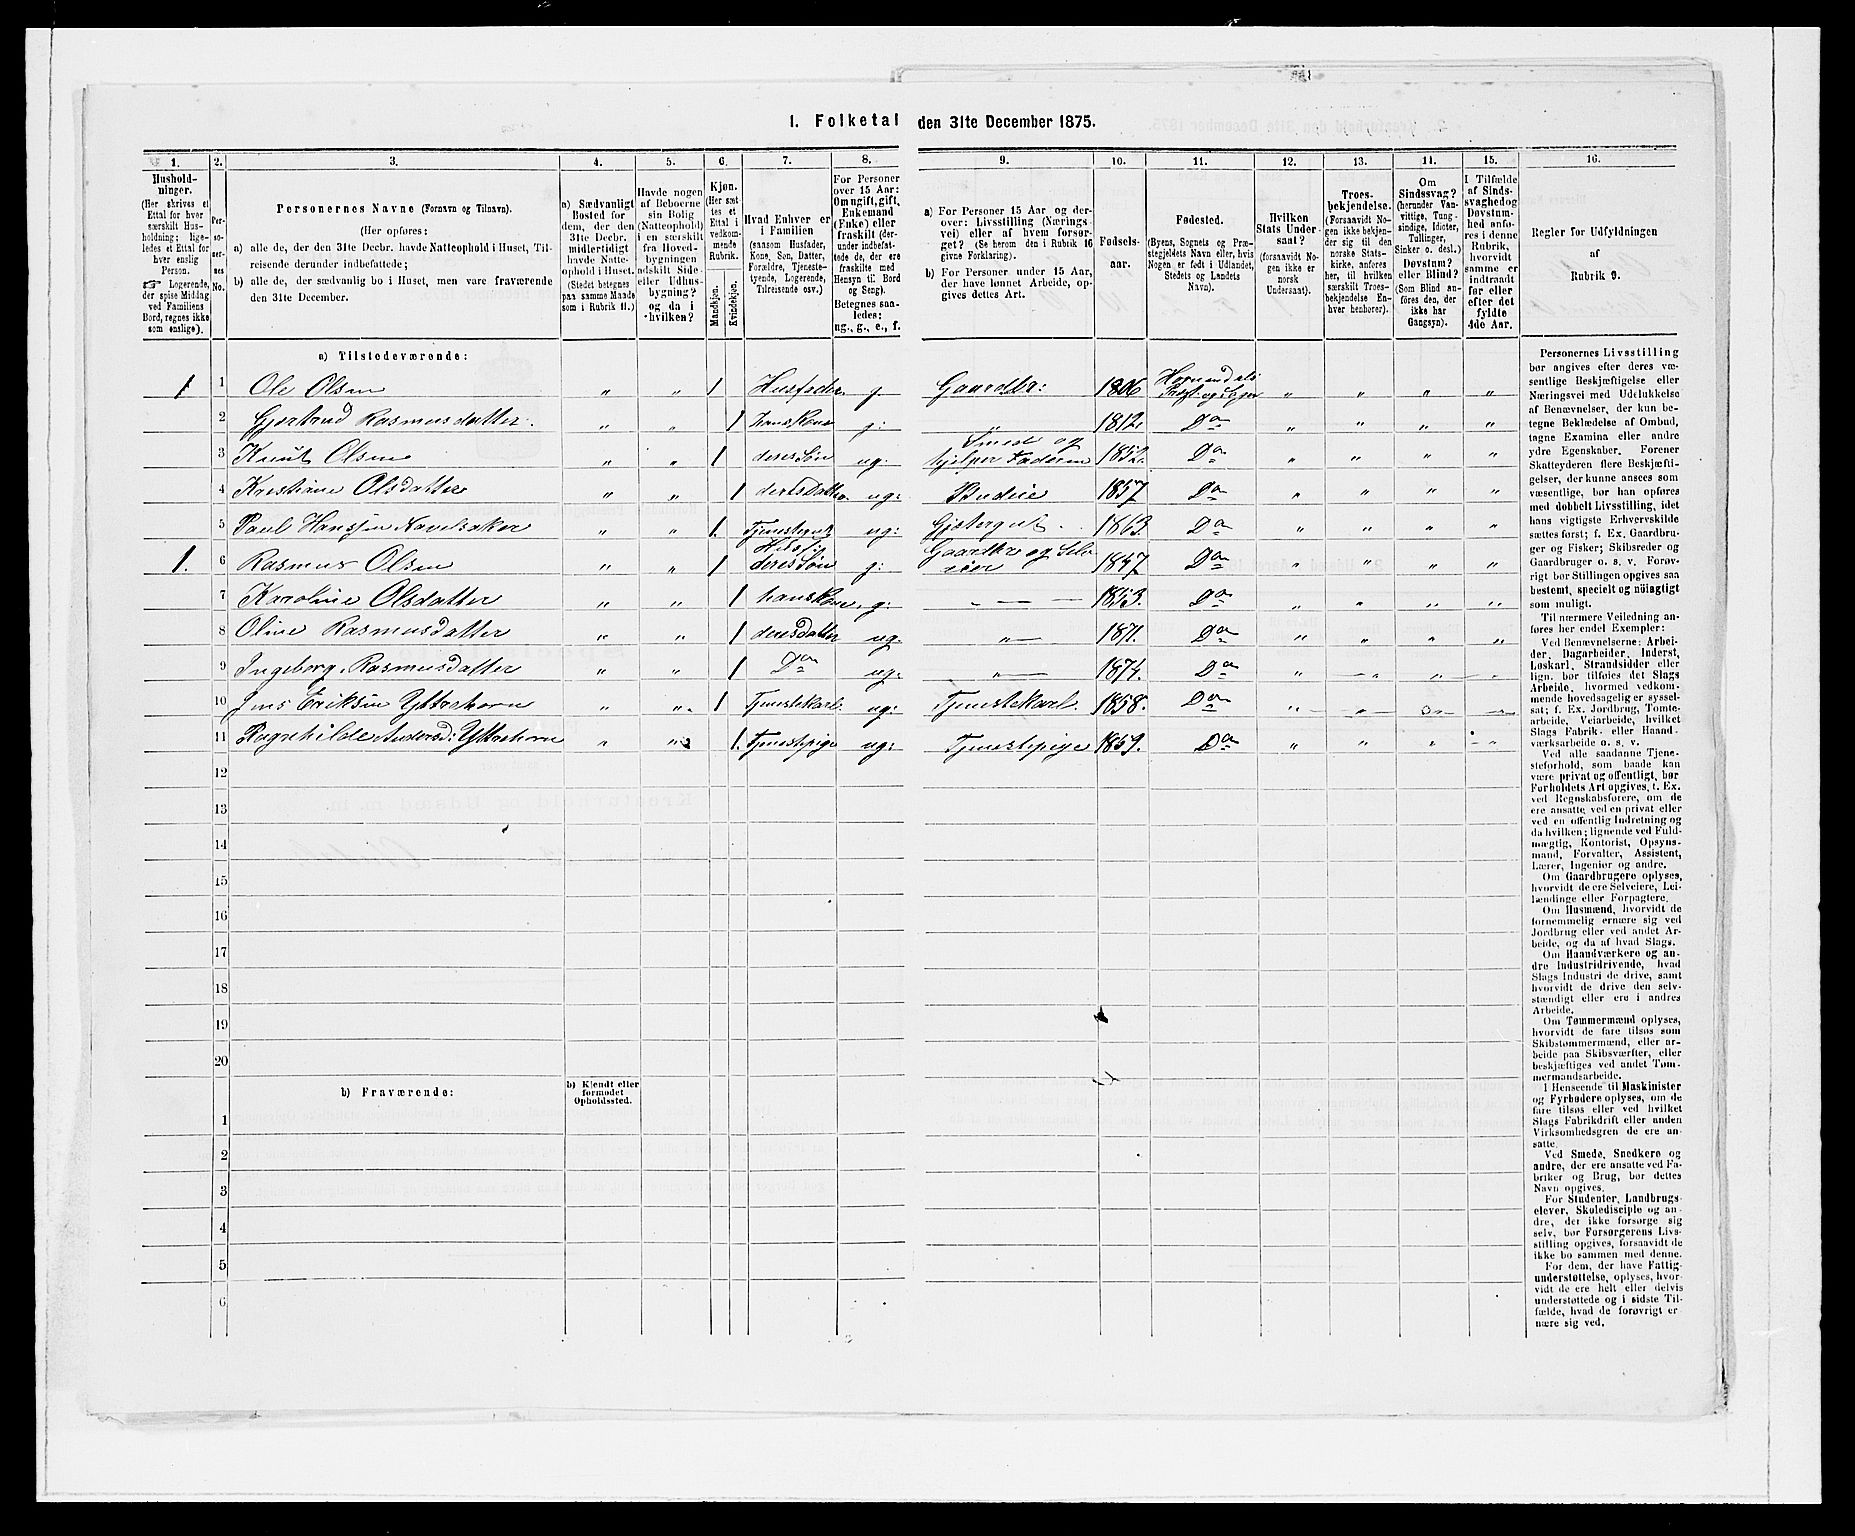 1. Folketal den 31te December 1875.
1. 2. 3. 4. 5. 6. 7. 8. 9. 10. 11. 12. 13. 14. 15. 16.
Hushold-
ninger.
(Her skrives et
Ettal for hver
særskilt Hus-
holdning; lige-
ledes et Ettal for
hver enslig
Person.
☞ Logerende,
der spise Middag
ved Familiens
Bord, regnes ikke
som enslige).
Per-
so-
ner-
nes
No.
Personernes Navne (Fornavn og Tilnavn).
(Her opføres:
a) alle de, der den 31te Decbr. havde Natteophold i Huset, Til-
reisende derunder indbefattede;
b) alle de, der sædvanlig bo i Huset, men vare fraværende
den 31te December.
a) Sædvanligt
Bosted for
dem, der den
31te Decbr.
midlertidigt
havde Natte-
ophold i Huset.
(Stedet betegnes
paa samme Maade
som i Rubrik 11.)
Havde nogen
af Beboerne
sin Bolig
(Natteophold)
i en særskilt
fra Hoved-
bygningen
adskilt Side-
eller Udhus-
bygning?
og da i
hvilken?
Kjøn.
(Her sæt-
tes et
Ettal i
vedkom-
mende
Rubrik.
Mandkjøn.
Kvindekjøn.
Hvad Enhver er
i Familien
(saasom Husfader,
Kone, Søn, Datter,
Forældre, Tjeneste-
tyende, Logerende,
Tilreisende osv.)
For Personer
over 15 Aar:
Om ugift, gift,
Enkemand
(Enke) eller
fraskilt (der-
under indbefat-
tede de, der ere
fraskilte med
Hensyn til Bord
og Seng).
Betegnes saa-
ledes:
ug., g., e., f.
a) For Personer 15 Aar og der-
over: Livsstilling (Nærings-
vei) eller af hvem forsør-
get? (Se herom den i Rubrik 16
givne Forklaring).
b) For Personer under 15 Aar,
der have lønnet Arbeide, op-
gives dettes Art.
Fødsels-
aar.
Fødested.
(Byens, Sognets og Præ-
stegjeldets Navn eller, hvis
Nogen er født i Udlandet,
Stedets og Landets
Navn).
Hvilken
Stats Under-
saat?
(forsaavidt No-
gen ikke er
norsk
Undersaat).
Troes-
bekjendelse.
(Forsaavidt No-
gen ikke bekjen-
der sig til den
norske Stats-
kirke, anføres
her, til hvilken
særskilt Troes-
bekjendelse En-
hver henhører).
Om
Sindssvag?
(herunder Van-
vittige, Tung-
sindige, Idioter,
Tullinger,
Sinker o. desl.)
Døvstum?
eller Blind?
(Som Blind an-
føres den, der
ikke har
Gangsyn).
I Tilfælde
af Sinds-
svaghed og
Døvstum-
hed anfø-
res i denne
Rubrik,
hvorvidt
samme er
indtraadt
før eller
efter det
fyldte
4de Aar.
Regler for Udfyldningen
af
Rubrik 9.
a) Tilstedeværende:
1 1 Ole Olsen " " 1 Husfader g. Gaardbr: 1806 " " " "
2 Gjertrud Rasmusdatter. " " 1 hans Kone g: " 1812. Do " " " "
3 Knut Olsen " " 1 deres Søn ug. Smed og hjelper Faderen 1852. Do " " " "
4 Kristiane Olsdatter " " 1 deres Datter ug: Budeie 1857 Do " " " "
5 Paul Hansen Navelsaker " " 1. Tjenestegut ug: Gjetergut. 1863. Do " " " "
1. 6 Rasmus Olsen " " 1 Husf. deres Søn g: Gaardbr og Selveier 1847 Do " " " "
7 Karoline Olsdatter " " 1 hans Kone. g: — — 1853. Do " " " "
8 Oline Rasmusdatter " " 1 deres datter ug. — " — 1871. Do " " " "
9 Ingeborg Rasmusdatter " " 1 Do ug. — " — 1874. Do " " " "
10 Jens Eriksen Yttrehorn " " 1 Tjenestekarl. ug: Tjenestekarl. 1858. Do " " " "
11 Ragnhilde Andersd: Yttrehorn " " 1. Tjenestepige ug: Tjenestepige 1859. Do " " " "
12
13
14
15
16
17
18
19
20
b) Fraværende:
b) Kjendt eller
formodet
Opholdssted.
1
2
3
4
5
6
Personernes Livsstilling
bør angives efter deres væ-
sentlige Beskjæftigelse eller
Næringsvei med Udelukkelse
af Benævnelser, der kun be-
tegne Beklædelse af Ombud,
tagne Examina eller andre
ydre Egenskaber. Forener
Skatteyderen flere Beskjæfti-
gelser, der kunne ansees som
væsentlige, bør han opføres
med dobbelt Livsstilling, idet
hans vigtigste Erhvervskilde
sættes først; f. Ex. Gaardbru-
ger og Fisker; Skibsreder og
Gaardbruger o. s. v. Forøv-
rigt bør Stillingen opgives saa
bestemt, specielt og nøiagtigt
som muligt.
Til nærmere Veiledning an-
føres her endel Exempler:
Ved Benævnelserne: Arbei-
der, Dagarbeider, Inderst,
Løskarl, Strandsidder eller
lign. bør tilføies det Slags
Arbeide, hvormed vedkom-
mende hovedsagelig er syssel-
sat; f. Ex. Jordbrug, Tomte-
arbeide, Veiarbeide, hvilket
Slags Fabrik- eller Haand-
værksarbeide o. s. v.
Ved alle saadanne Tjene-
steforhold, som baade kan
være privat og offentligt, bør
Forholdets Art opgives, f. Ex.
ved Regnskabsførere, om de
ere ansatte ved en privat eller
ved en offentlig Indretning og
da hvilken; lignende ved Fuld-
mægtig, Kontorist, Opsyns-
mand, Forvalter, Assistent,
Lærer, Ingeniør og andre.
Om Gaardbrugere oplyses,
hvorvidt de ere Selveiere, Lei-
lændinge eller Forpagtere.
Om Husmænd, hvorvidt de
fornemmelig ernære sig ved
Jordbrug eller ved andet Ar-
beide, og da af hvad Slags.
Om Haandværkere og an-
dre Industridrivende, hvad
Slags Industri de drive, samt
hvorvidt de drive den selv-
stændigt eller ere i andres
Arbeide.
Om Tømmermænd oplyses,
hvorvidt de fare tilsøs som
Skibstømmermænd, eller ar-
beide paa Skibsværfter, eller
beskjæftiges ved andet Tøm-
mermandsarbeide.
I Henseende til Maskinister
og Fyrbødere oplyses, om de
fare tilsøs eller ved hvilket
Slags Fabrikdrift eller anden
Virksomhedsgren de ere an-
satte.
Ved Smede, Snedkere og
andre, der ere ansatte ved Fa-
briker og Brug, bør dettes
Navn opgives.
For Studenter, Landbrugs-
elever, Skoledisciple og an-
dre, der ikke forsørge sig
selv, bør Forsørgerens Livs-
stilling opgives, forsaavidt de
ikke bo sammen med denne.
For dem, der have Fattig-
understøttelse, oplyses, hvor-
vidt de ere helt eller delvis
understøttede og i sidste Til-
fælde, hvad de forøvrigt er-
nære sig ved.